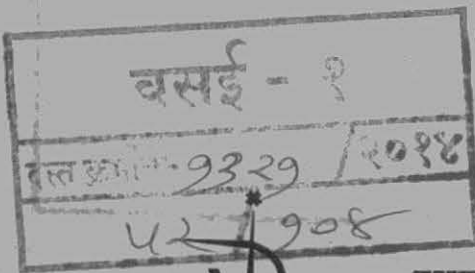 वसई - १
दस्त क्रमांक - १३२१ / २०१४
५२ / १०४